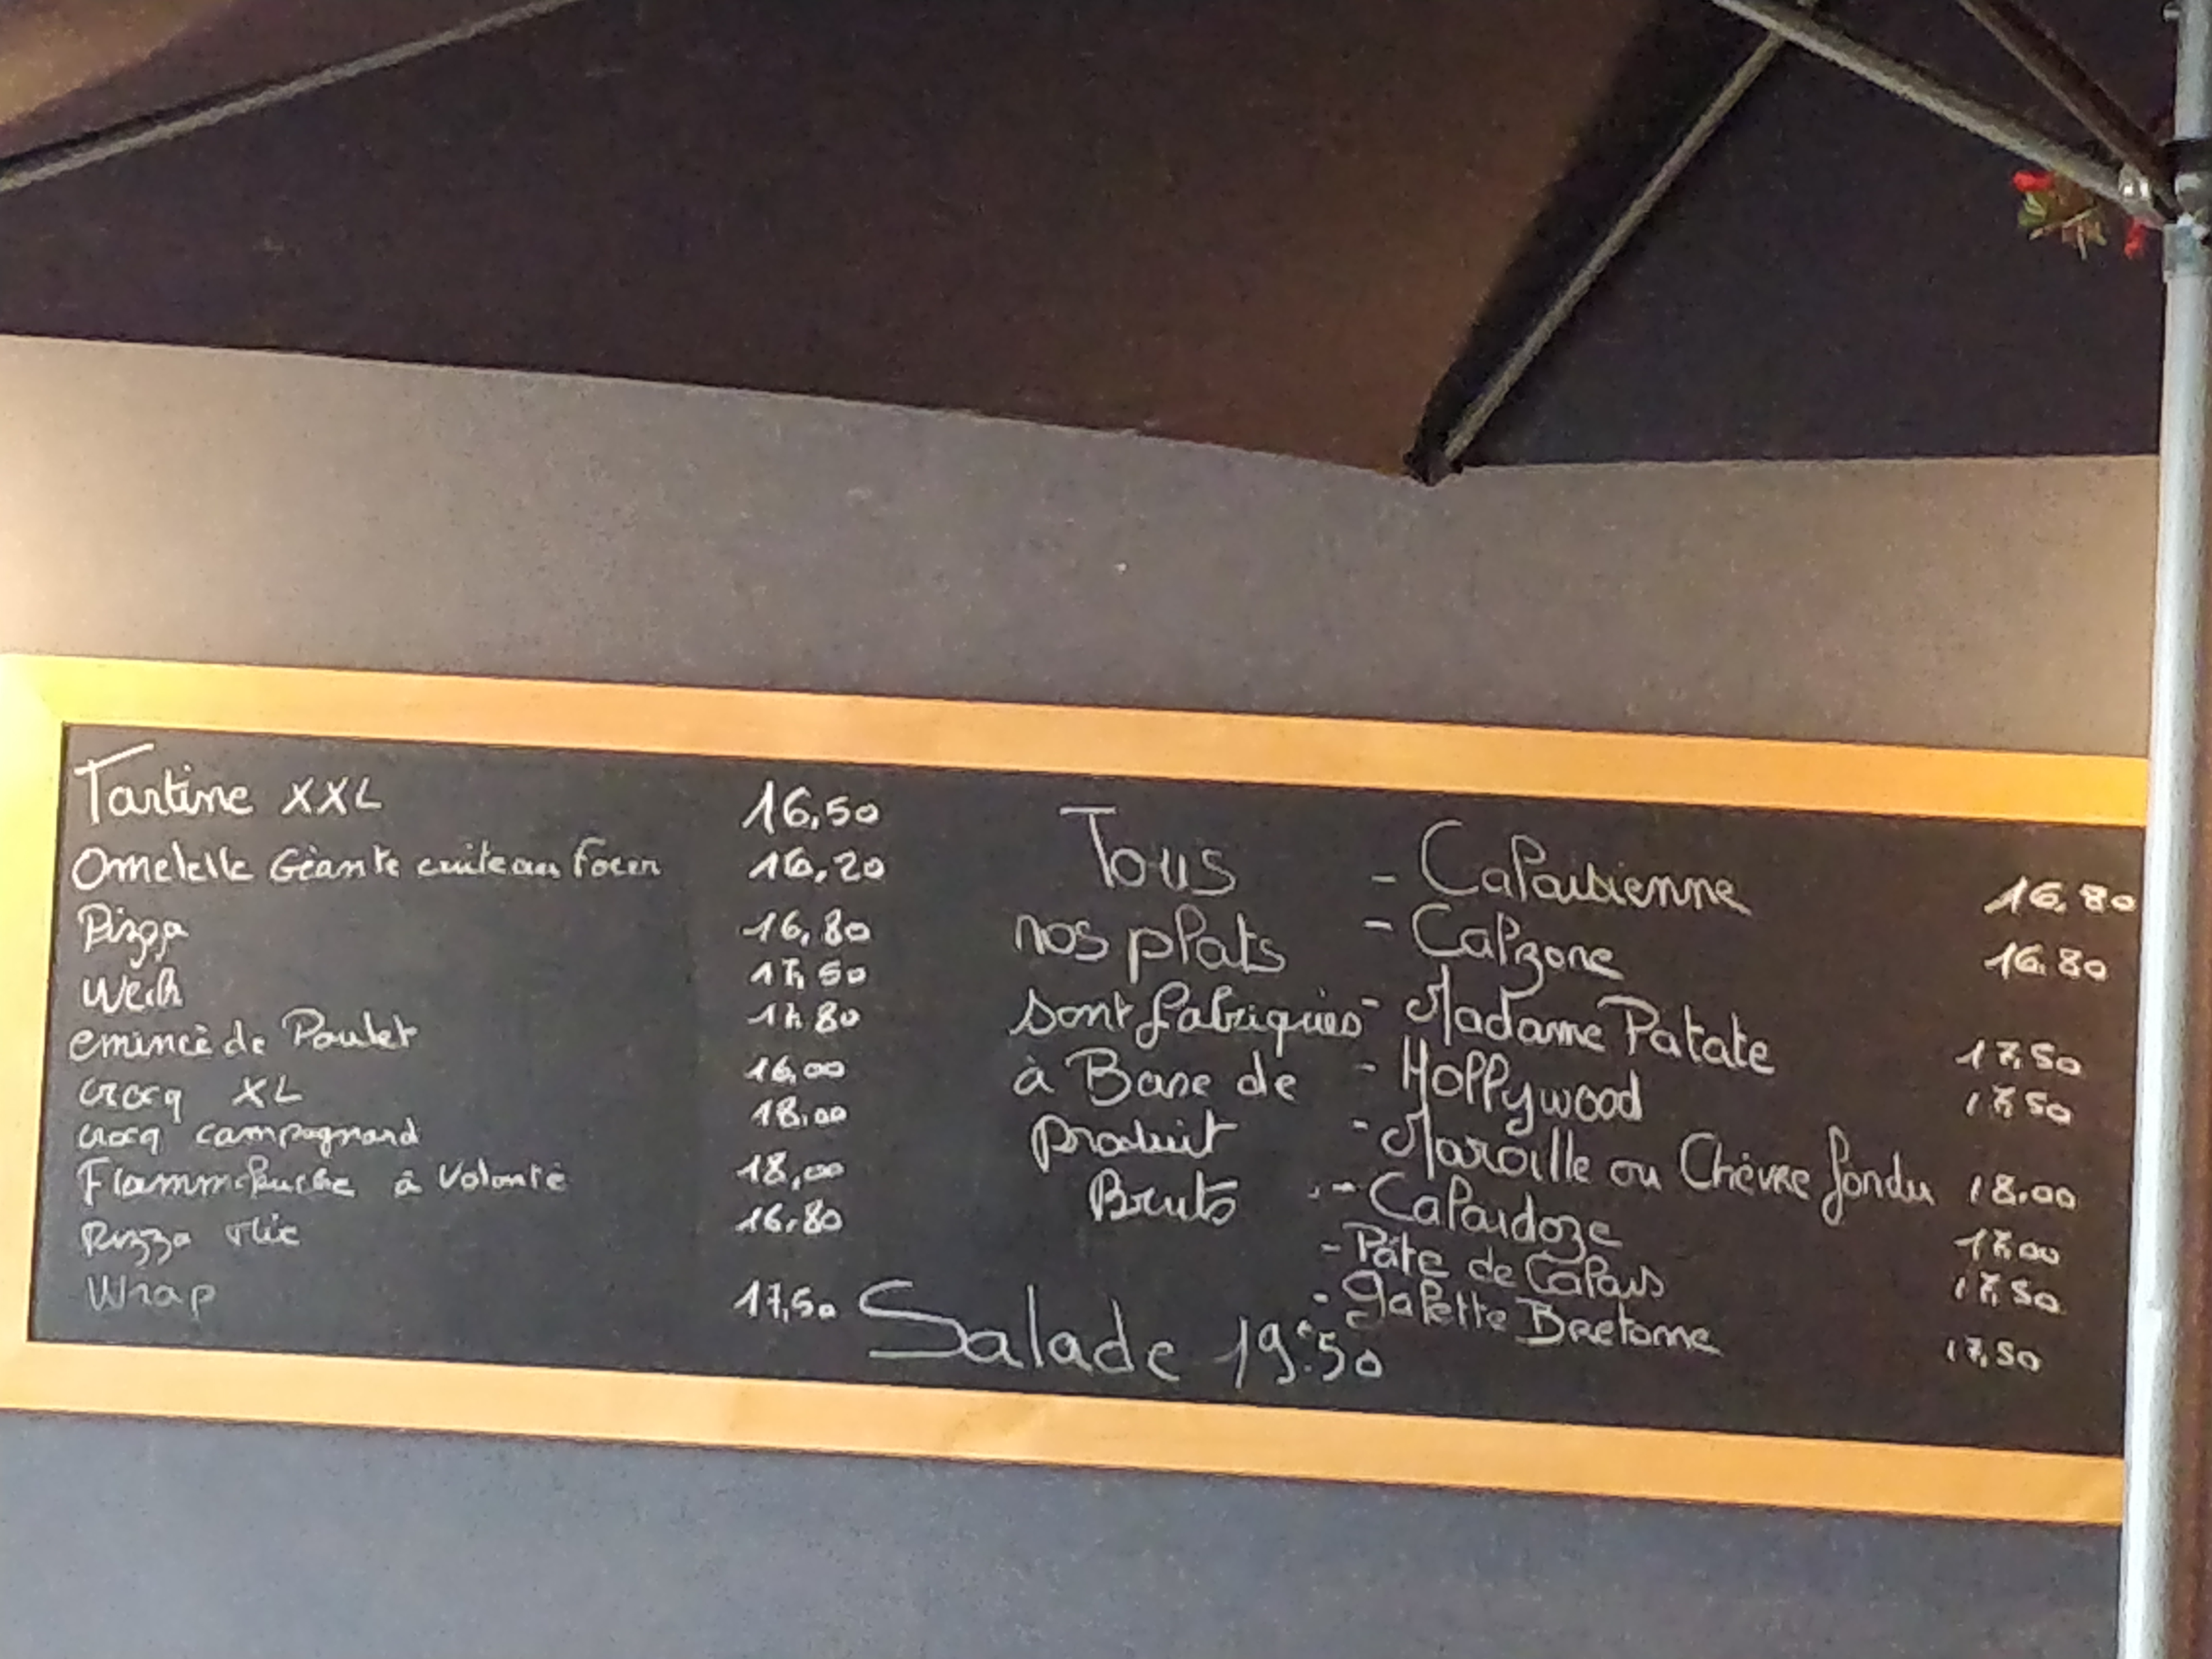 Tartine XXL 16,50
Omelette Géante cuite au four 16,20
Pizza 16,80
Welsh 17,50
emincé de Poulet 17,80
Crocq XL 16,00
crocq campagnard 18,00
Flammekueche à Volonté 18,00
Pizza 16,80
Wrap 17,50
Tous
nos plats
sont fabriqués
à Base de
produit
Bruts
- Calaisienne 16,80
- Calzone 16.80
- Madame Patate 17,50
- Hollywood 17,50
- Maroille ou Chèvre fondu 18.00
- Calaidoze 17,00
- Pâte de Calais 17,50
- galette Bretonne 17,50
Salade 19.50